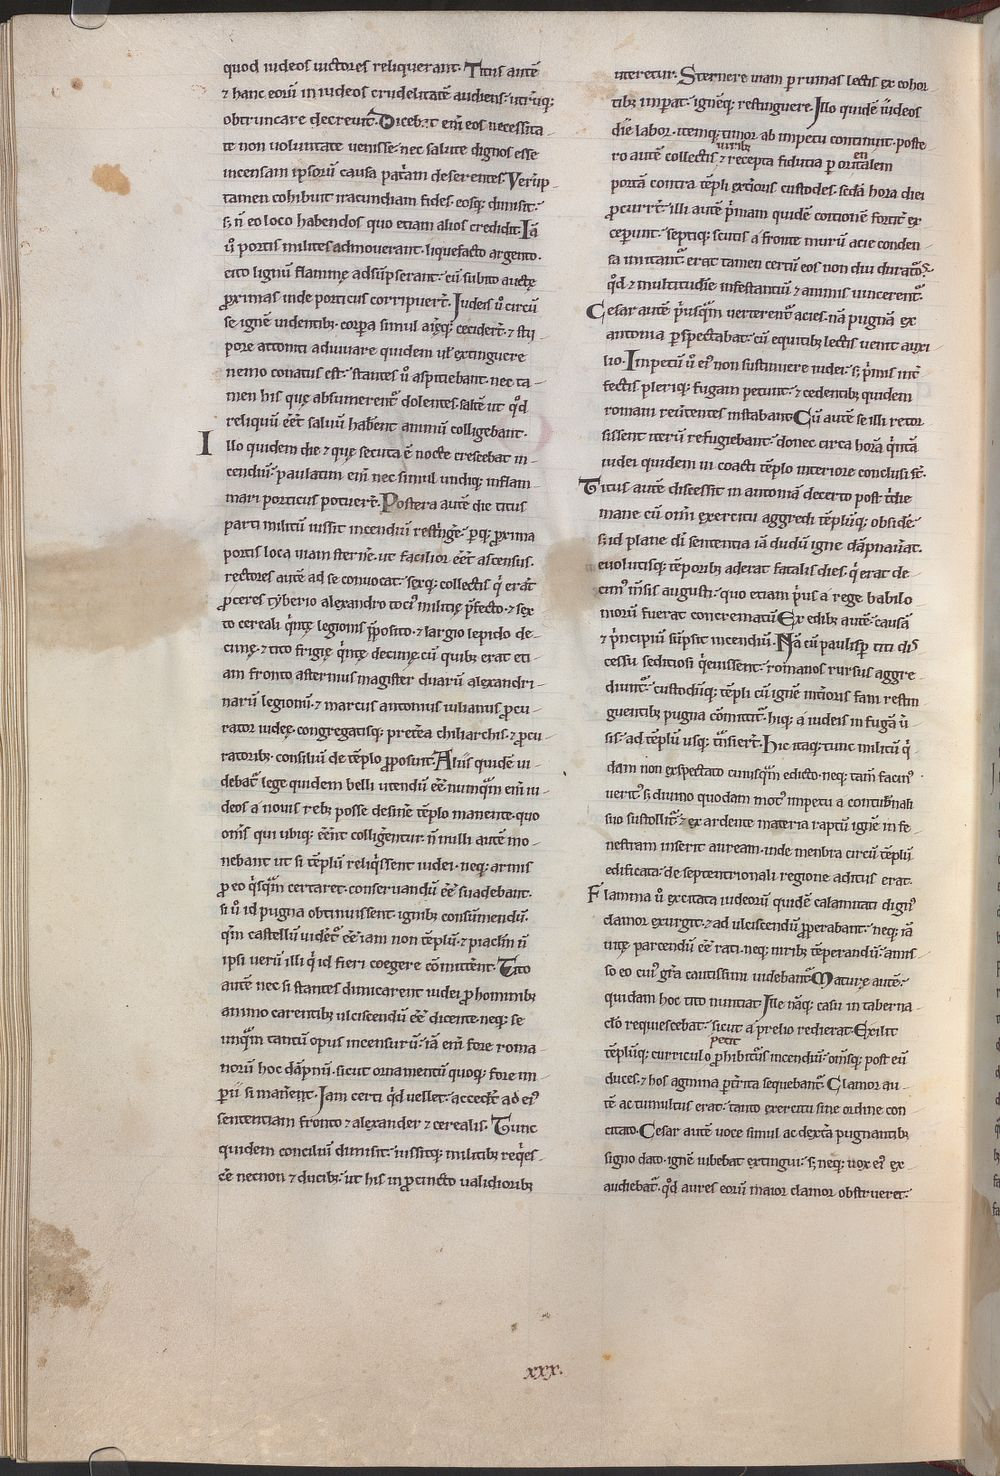 quod iudeos uictores reliquerant. Titus autē
⁊ hanc eorū in iudeos crudelitatē audiens. utrūq;
obtruncare decreuit. Dicebat enī eos necessita
te non uoluntate uenisse. nec salute dignos esse
incensam ipsorū causa patriam deserentes. Verūp
tamen cohibuit iracundiam fides. eosq; dimisit.
s; ñ eo loco habendos quo etiam alios credidit. Iā
ů portis milites admouerant. liquefacto argento.
cito lignū flammę adsūpserant. eū subito auctę
proximas inde porticus corripuerť. Judeis ů circū
se ignē uidentib; corpora simul aīęq; ceciderť. ⁊ stu
pore attoniti adiuuare quidem uł extinguere
nemo conatus est. stantes ů aspitiebant. nec ta-
men his quę absumerentᷣ dolentes. saltē ut q̊d
reliquū eēt saluū habent animū colligebant.
Illo quidem die ⁊ quę secuta ē nocte crescebat in-
cendiū. paulatim enī nec simul undiq; inflam-
mari porticus potuerť. Postera autē die titus
parti militū iussit incendiū restinge. pq; proxima
portis loca uiam sterne. ut facilior eēt ascensus.
rectores autē ad se conuocat. sexq; collectis q̇ erāt
proceres tyberio alexandro toci militię p̄fecto. ⁊ sex
to cereali quīntę legionis pposito. ⁊ largio lepido de-
cimę. ⁊ tito frigię quīntę decimę. cū quib; erat eti-
am fronto aͭternius magister duarū alexandri-
narū legionū. ⁊ marcus antonius iulianus procu-
rator iudeę. congregatisq; p̄terea chiliarchis. ⁊ procu
ratorib; consiliū de tēplo proposuit. Aliis quidē ui-
debatᷣ lege quidem belli utendū eē. numquam enī iu-
deos a nouis reb; posse desine tēplo manente. quo
omīs qui ubiq; eēnt colligentur. ñ nulli autē mo-
nebant ut si tēplū reliq̇ssent iudei. neq; armis
pro eo q̇sq̄m certaret. conseruandū eē suadebant.
si ů id pugna obtinuissent. ignib; consūmendū.
q̄m castellū uideťᷣ eē iam non tēplū. ⁊ piaclm ñ
ipsi uerū illi q̇ id fieri coegere cōmitťent. Tito
autē nec si stantes dimicarent iudei pro hominib;
animo carentib; ulciscendū eē dicente. neq; se
umq̄m tantū opus incensurū. iā enī fore roma-
norū hoc dāpnū. sicut ornamentū quoq; fore im-
perii si manent. Jam certi q̇d uellet. acceđt ad ei
sententiam fronto ⁊ alexander ⁊ cerealis. Tunc
quidem conciliū dimisit. iussitq; militib; req̇es-
ce necnon ⁊ ducib; ut his in procinctu ualidiorib;
uteretur. Sternere uiam per ruinas lectis ex cohor
tib; impat. ignēq; restinguere. Illo quidē iudeos
die labor. itemq; timor ab impetu continuit. poste
uirib;
ro autē collectis ⁊ recepta fidutia per orientalem
portā contra tēpli exterious custodes. sedā hora diei
procurrť. illi autē p̄mam quidē contionē fortiť ex
ceperunt. septiq; scutis a fronte murū acie conden-
sa imitantᷣ. erat tamen certū eos non diu duratoͬs.
q̊d ⁊ multitudine infestantiū ⁊ animis uincerentᷣ.
Cesar autē p̄usq̄m uerterentᷣ acies. nā pugnā ex
antonia perspectabat. cū equitib; lectis uenit auxi-
lio. Impetū ů ei non sustinuere iudei. s; p̄mis inť
fectis pleriq; fugam petunt. ⁊ cedentib; quidem
romani reūtentes instabant. Cū autē se illi retor
sissent iterū refugiebant. donec circa horā quīntā
iudei quidem ui coacti tēplo interiore conclusi sť.
Titus autē discessit in antoniā decerto post tdie
mane cū omī exercitu aggredi tēplūq; obsidē.
s; id plane dī sententia iā dudū igne dāpnauāt.
euolutisq; tēporib; aderat fatalis dies. q̇ erat de-
cim mīsis augusti. quo etiam p̄us a rege babilo
niorū fuerat concrematū. Ex edib; autē causā
⁊ p̄ncipiū sūpsit incendiū. Nā cū paulisp titi dis
cessu seditiosi q̇euissent. romanos rursus aggre-
diuntᷣ. custodūq; tēpli cū ignē inťioris fani restin
guentib; pugna cōmittitᷣ. hiq; a iudeis in fugā ů
sis. ad tēplū usq; tᷓnsierť. Hic itaq; tunc militū q̇
dam non exspectato cuiusq̄m edicto. neq; tam̄ facin
uerit s; diuino quodam mot impetu a contubernali
suo sustollitᷣ. ⁊ ex ardente materia raptū ignē in fe-
nestram inserit auream. unde menbra circū tēplū
edificata. de septentrionali regione aditus erat.
Flamma ů excitata iudeorū quidē calamitati dign
clamor exurgit. ⁊ ad ulciscendū properabant. neq; iā
uitę parcendū eē rati. neq; uirib; tēperandū. amis-
so eo cui gr̄a cautissimi uidebantᷣ. Mature autē.
quidam hoc tito nuntiat. Ille nāq; casu in taberna-
clo requiescebat. sicut a prelio redierat. Exiliit
petit
tēplūq; curriculo prohibitᷣus incendiū. omīsq; post eū
duces. ⁊ hos agmina perťita sequebantᷣ. Clamor au-
tē ac tumultus erat. tanto exercitu sine ordine con
citato. Cesar autē uoce simul ac dextra pugnantib;
signo dato. ignē iubebat extingui. s; neq; uox ei ex-
audiebatᷣ. q̊d aures eorū maior clamor obstrueret.
xxx.